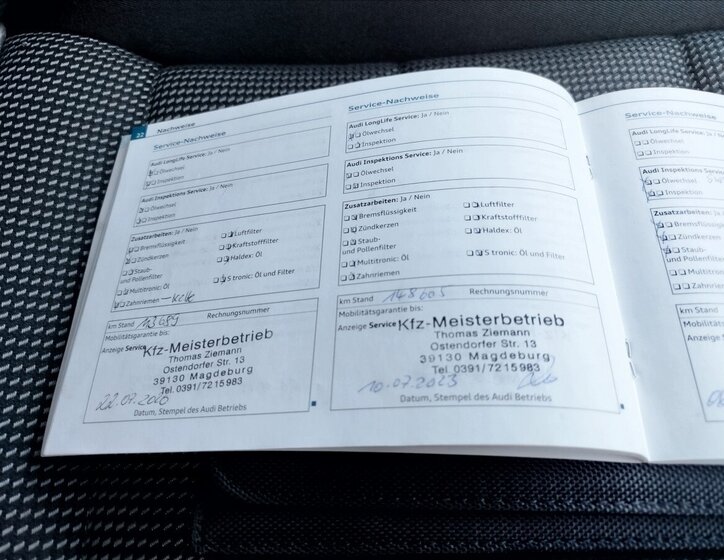 22 Nachweise
Service-Nachweise
Audi LongLife Service: Ja / Nein
Ölwechsel
Inspektion
Audi Inspektions Service: Ja / Nein
Ölwechsel
Inspektion
Zusatzarbeiten: Ja / Nein
Bremsflüssigkeit
Luftfilter
Zündkerzen
Kraftstofffilter
Staub-
und Pollenfilter
Haldex: Öl
Multitronic: Öl
S tronic: Öl und Filter
Zahnriemen
km Stand
Rechnungsnummer
Mobilitätsgarantie bis:
Anzeige Service
Kfz-Meisterbetrieb
Thomas Ziemann
Ostendorfer Str. 13
39130 Magdeburg
Tel. 0391/7215983
22.07.2020
Datum, Stempel des Audi Betriebs
Service-Nachweise
Audi LongLife Service: Ja / Nein
Ölwechsel
Inspektion
Audi Inspektions Service: Ja / Nein
Ölwechsel
Inspektion
Zusatzarbeiten: Ja / Nein
Bremsflüssigkeit
Luftfilter
Zündkerzen
Kraftstofffilter
Staub-
und Pollenfilter
Haldex: Öl
Multitronic: Öl
S tronic: Öl und Filter
Zahnriemen
km Stand 148605 Rechnungsnummer
Mobilitätsgarantie bis:
Anzeige Service
Kfz-Meisterbetrieb
Thomas Ziemann
Ostendorfer Str. 13
39130 Magdeburg
Tel. 0391/7215983
10.07.2023
Datum, Stempel des Audi Betriebs
Service-Nachweise
Audi LongLife Service: Ja /
Ölwechsel
Inspektion
Audi Inspektions Service: Ja
Ölwechsel
Inspektion
Zusatzarbeiten: Ja / Nein
Bremsflüssigkeit
Zündkerzen
Staub-
und Pollenfilter
Multitronic: Öl
Zahnriemen
km Stand
Mobilitätsgarantie
Anzeige Ser